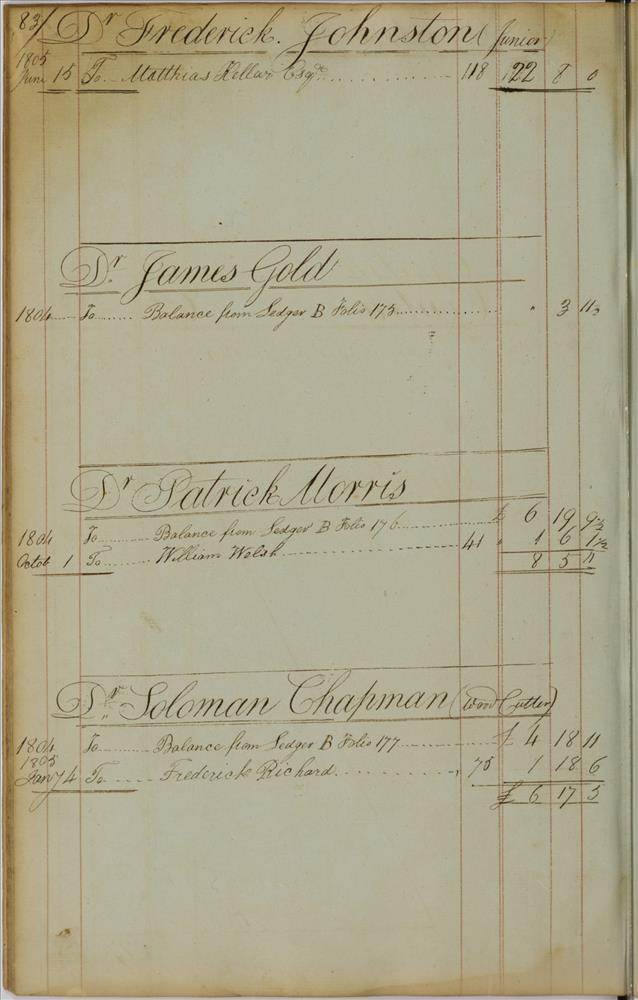 83/ Dr Frederick. Johnston (Junior)
1805
June 15 To Matthias Kellar Esqr. 118 122 8 0
Dr James Gold
1804 To Balance from Ledger B Folio 175 " 3 11½
Dr Patrick Morris
1804 To Balance from Ledger B Folio 176 £ 6 19 9½
Octob 1 To William Welsh 41 " 1 6 1½
8 5 11
Dr Soloman Chapman (Wood Cutter)
1804 To Balance from Ledger B Folio 177 £ 4 18 11
1805
Jany 4 To Frederick Richard 75 1 18 6
£ 6 17 5